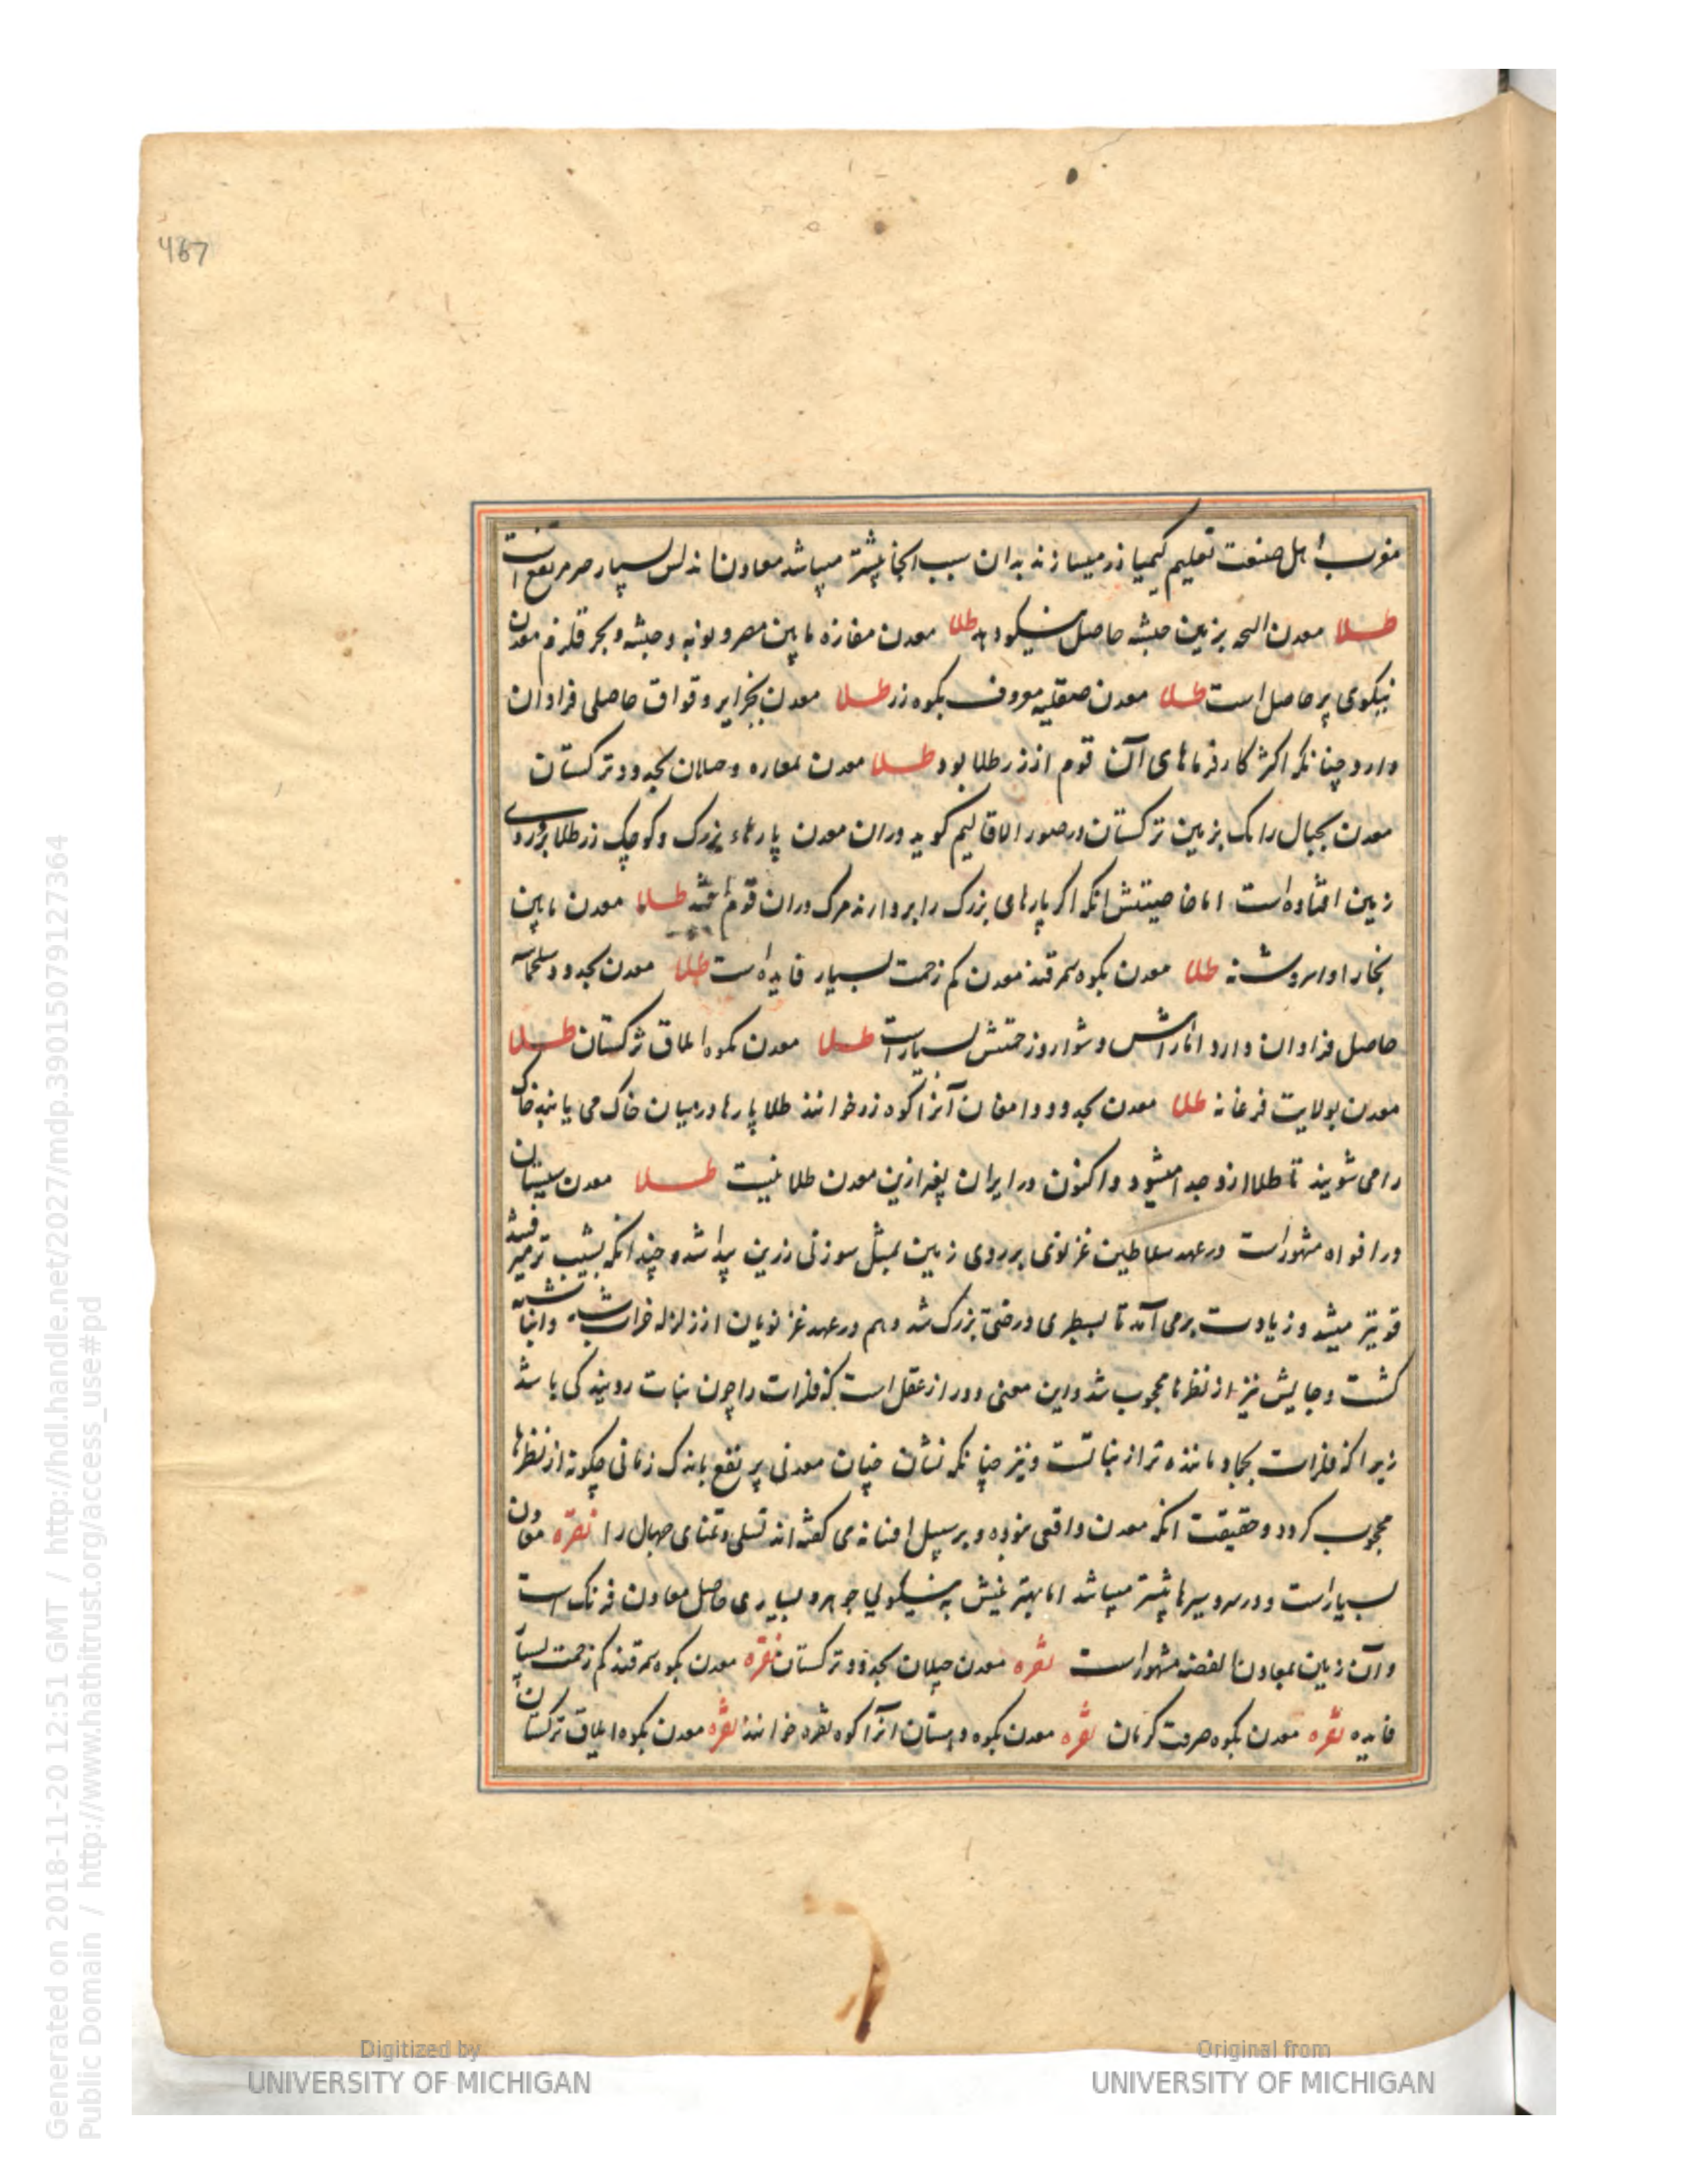 467
مغرب اهل صنعت تعلیم کیمیا زر میسازند بدان سبب آنجا بیشتر میباشد معادن اندلس بسیار و پر نفع است
طلا معدن البجه بزمین حبشه حاصل نیکو دهد طلا معدن مفازه مابین مصر و نوبه و حبشه و بحر قلزم معدن
نیکوی پر حاصل است طلا معدن صقلیه معروف بکوه زر طلا معدن بجزایر وقواق حاصلی فراوان
دارد چنانکه اکثر کارفرماهای آن قوم از زر طلا بود طلا معدن بحدود ترکستان
معدن بجبال رانک بزمین ترکستان در صور الاقالیم گوید در آن معدن پارهاء بزرک و کوچک زر طلا بر روی
زمین افتاده است اما خاصیتش آنکه اکر پارهای بزرک را بردارند مرک در آن قوم افتد طلا معدن مابین
بخارا و اسروشنه طلا معدن بکوه سمرقند معدن کم زحمت بسیار فایده است طلا معدن بحدود سلجماسه
حاصل فراوان دارد اما راهش دشوار و زحمتش بسیار است طلا معدن بکوه ایلاق ترکستان طلا
معدن بولایت فرغانه طلا معدن بحدود دامغان آنرا کوه زر خوانند طلا پارها در میان خاک می یابند خاک
را می شویند تا طلا ازو جدا میشود و اکنون در ایران بغیر ازین معدن طلا نیست طلا معدن سیستان
در افواه مشهور است در عهد سلاطین غزنوی بر روی زمین بمثل سوزنی زرین پیدا شد و چندانکه بشیب تر میرفتند
قویتر میشد و زیادت برمی آمد تا بسطبری درختی بزرک شد و هم در عهد غزنویان از زلزله خراب شد و انباشته
کشت و جایش نیز از نظرها محجوب شد و این معنی دور از عقل است که فلزات را چون نبات رویندکی باشد
زیرا که فلزات بجماد ماننده تر از نباتست و نیز چنانکه نشان چنان معدنی پر نفع باندک زمانی چکونه از نظرها
محجوب کردد و حقیقت آنکه معدن واقعی نبوده و بر سبیل افسانه ی کفته اند تسلی و تمنای جهال را نقره معادن
بسیار است و در سردسیرها بیشتر میباشد اما بهترینش به نیکویی جوهر و بسیاری حاصل معادن فرنک است
و آن زمین بمعادن الفضه مشهور است نقره معدن جیلان بحدود ترکستان نقره معدن بکوه سمرقند کم زحمت بسیار
فایده نقره معدن بکوه کرمان نقره معدن بکوه دهستان آنرا کوه نقره خوانند نقره معدن بکوه ایلاق ترکستان
Digitized by
UNIVERSITY OF MICHIGAN
Original from
UNIVERSITY OF MICHIGAN
Generated on 2018-11-20 12:51 GMT / http://hdl.handle.net/2027/mdp.39015079127364
Public Domain / http://www.hathitrust.org/access_use#pd